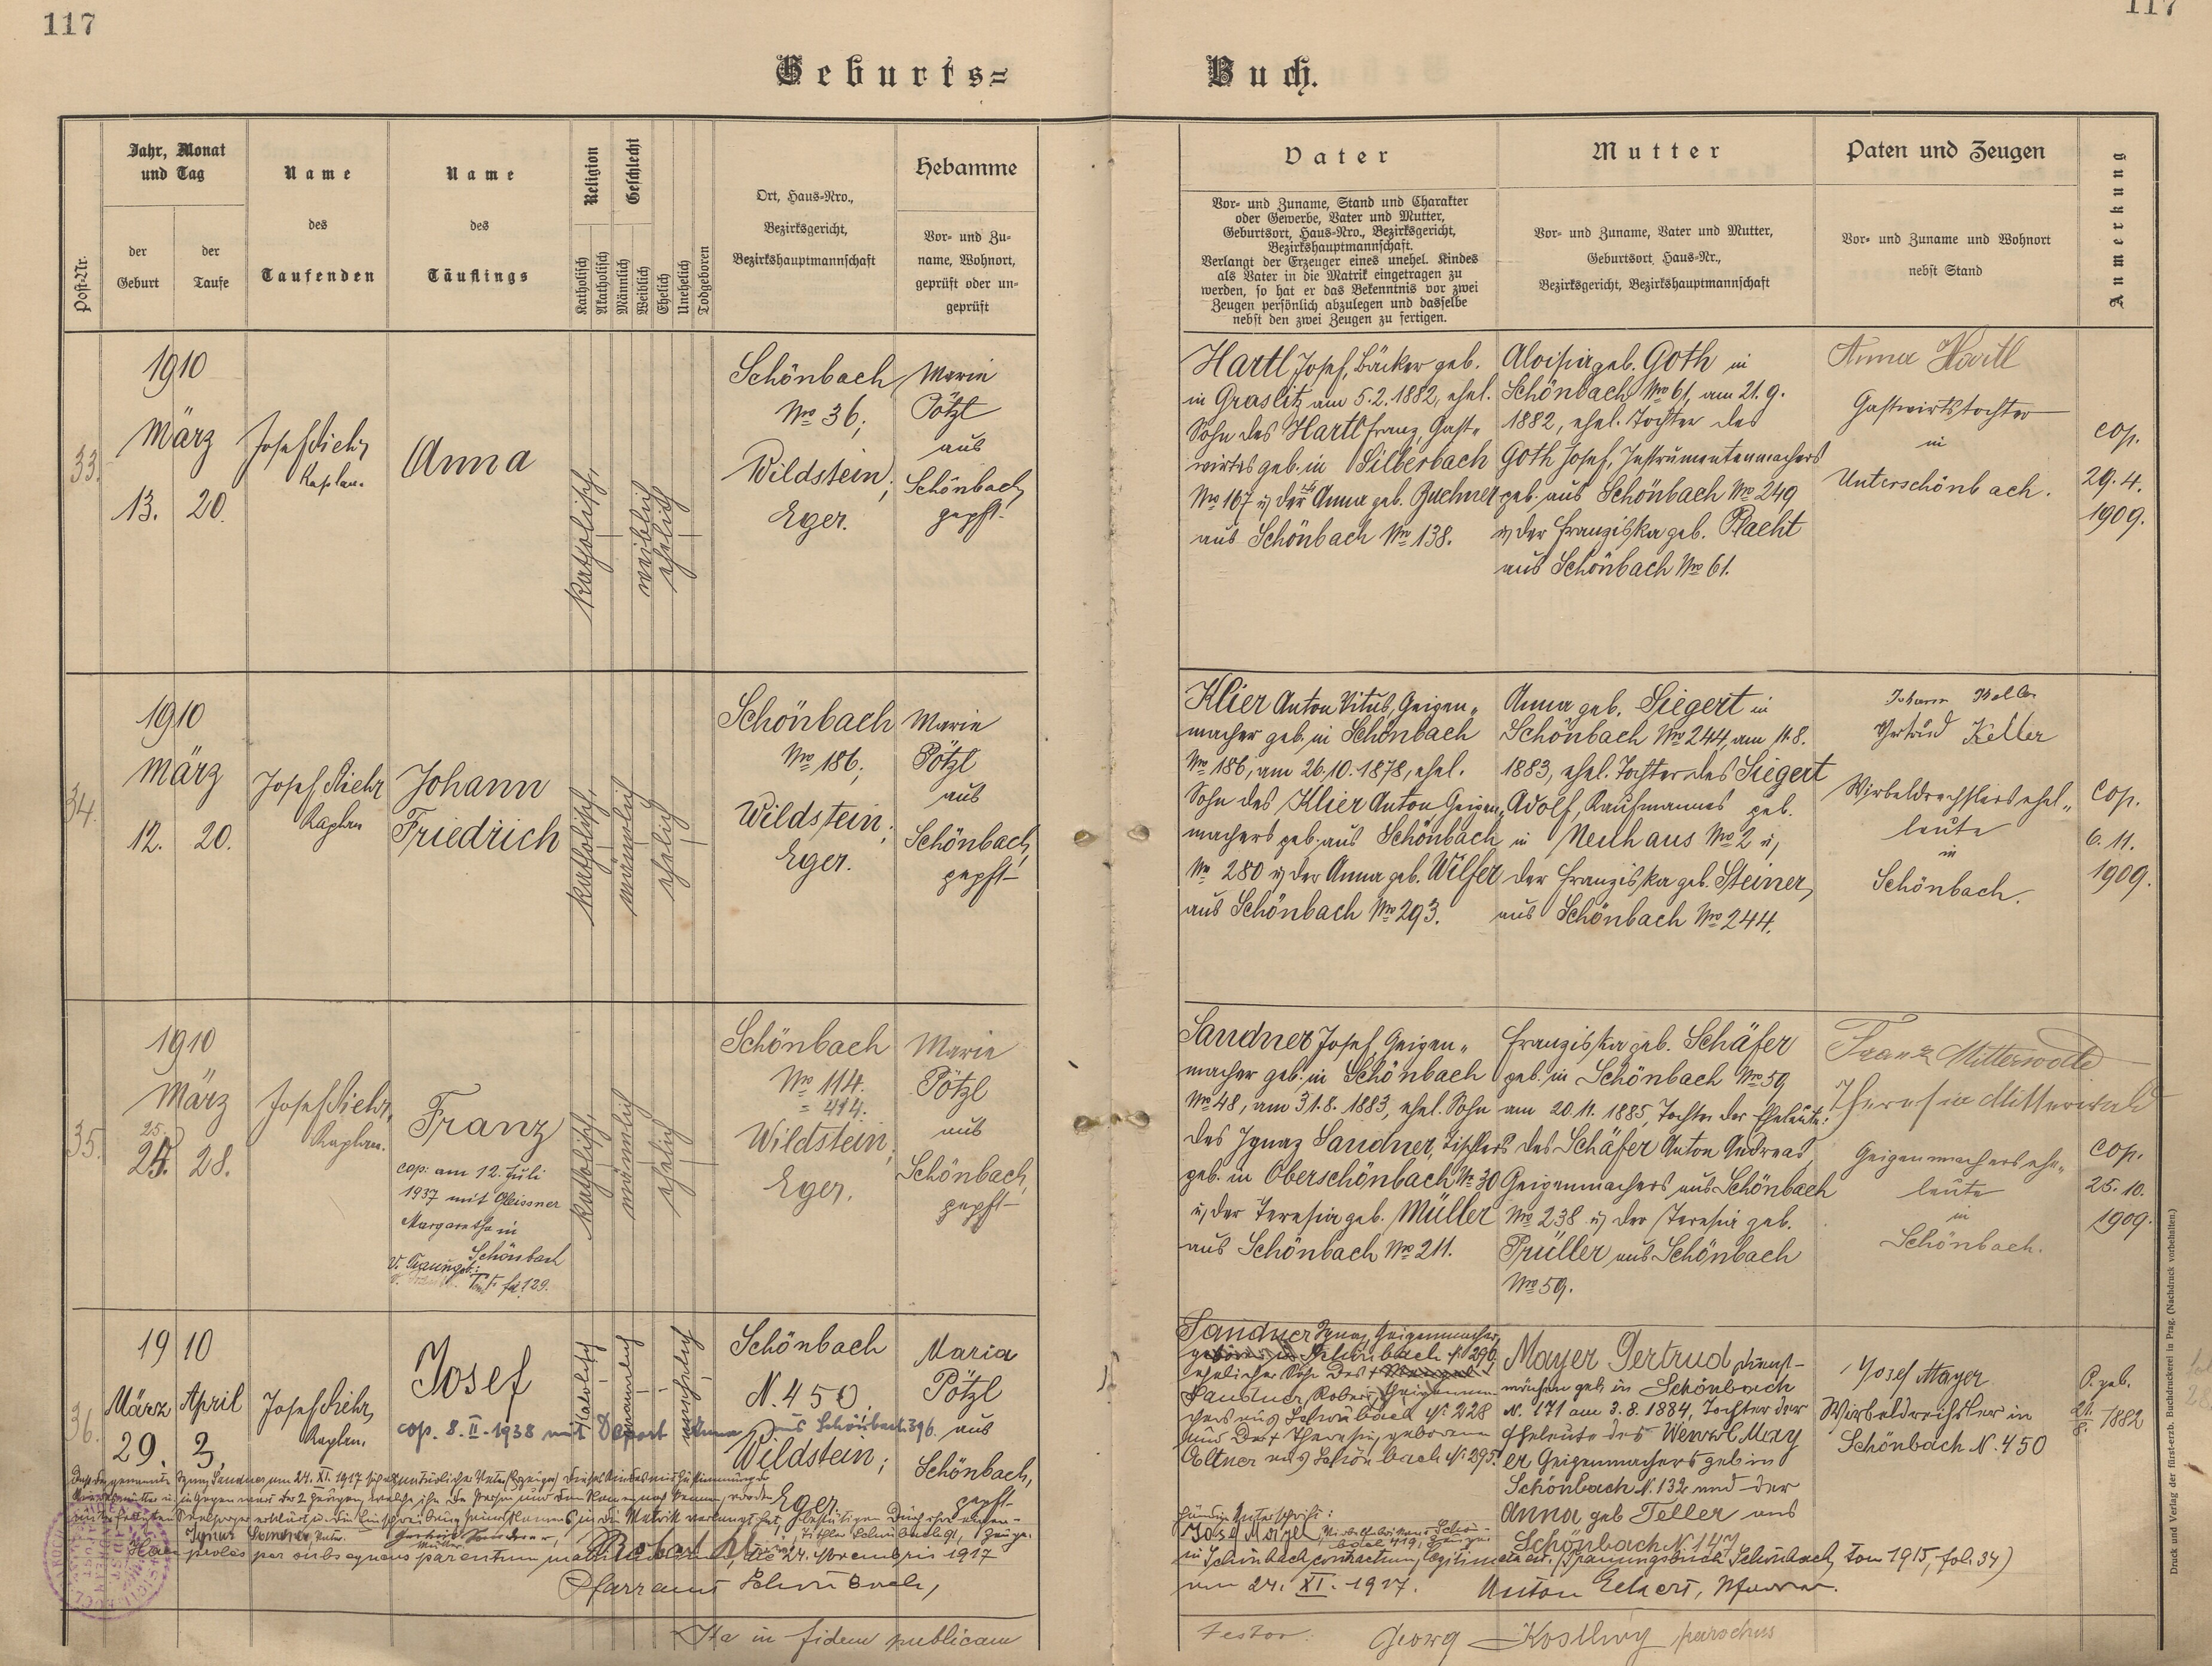 117
117
Geburts=
Buch.
Post-Nr.
Jahr, Monat
und Tag
der
Geburt
der
Taufe
Name
des
Taufenden
Name
des
Täuflings
Religion
Katholisch
Akatholisch
Geschlecht
Männlich
Weiblich
Ehelich
Unehelich
Todgeboren
Ort, Haus-Nro.,
Bezirksgericht,
Bezirkshauptmannschaft
Hebamme
Vor- und Zu-
name, Wohnort,
geprüft oder un-
geprüft
Vater
Vor- und Zuname, Stand und Charakter
oder Gewerbe, Vater und Mutter,
Geburtsort, Haus-Nro., Bezirksgericht,
Bezirkshauptmannschaft.
Verlangt der Erzeuger eines unehel. Kindes
als Vater in die Matrik eingetragen zu
werden, so hat er das Bekenntnis vor zwei
Zeugen persönlich abzulegen und dasselbe
nebst den zwei Zeugen zu fertigen.
Mutter
Vor- und Zuname, Vater und Mutter,
Geburtsort, Haus-Nr.,
Bezirksgericht, Bezirkshauptmannschaft
Paten und Zeugen
Vor- und Zuname und Wohnort
nebst Stand
Anmerkung
33.
1910
März
13. 20.
Josef
Kaplan.
Anna
katholisch,
weiblich
ehelich
Schönbach
Nro 36;
Wildstein,
Eger.
Marie
Pötzl
aus
Schönbach,
gepft.
Hartl Josef, Bäcker geb.
in Graslitz am 5.2.1882, ehel.
Sohn des Hartl Franz, Gast-
wirtes geb. in Silberbach
Nro 167 u. der Anna geb. Zuchner
aus Schönbach Nro 138.
Aloisia geb. Goth in
Schönbach Nro 61, am 21.9.
1882, ehel. Tochter des
Goth Josef, Instrumentenmachers
geb. aus Schönbach Nro 249
u. der Franziska geb. Placht
aus Schönbach Nro 61.
Anna Hartl
Gastwirtstochter
in
Unterschönbach.
cop.
29.4.
1909.
34.
1910
März
12. 20.
Josef
Kaplan
Johann
Friedrich
katholisch,
männlich
ehelich
Schönbach
Nro 186;
Wildstein,
Eger.
Marie
Pötzl
aus
Schönbach,
gepft.
Klier Anton Vitus, Geigen-
macher geb. in Schönbach
Nro 186, am 26.10.1878, ehel.
Sohn des Klier Anton, Geigen-
machers geb. aus Schönbach
Nro 280 u. der Anna geb. Wilfer
aus Schönbach Nro 293.
Anna geb. Siegert in
Schönbach Nro 244, am 11.8.
1883, ehel. Tochter des Siegert
Adolf, Kaufmannes geb.
in Neuhaus Nro 2 u.
der Franziska geb. Steiner,
aus Schönbach Nro 244.
Johann Keller
Gertrud Keller
Wirbeldrechslersehe-
leute
in
Schönbach.
cop.
6.11.
1909.
35.
1910
März
25.
28.
Josef
Kaplan.
Franz
cop. am 12. Juli
1937 mit Gleissner
Margaretha in
Schönbach
fol. 129.
katholisch,
männlich
ehelich
Schönbach
Nro 114.
= 414.
Wildstein,
Eger.
Marie
Pötzl
aus
Schönbach,
gepft.
Sandner Josef, Geigen-
macher geb. in Schönbach
Nro 48, am 31.8.1883, ehel. Sohn
des Ignaz Sandner, Tischlers
geb. in Oberschönbach Nr 30
u. der Teresia geb. Müller
aus Schönbach Nro 211.
Franziska geb. Schäfer
geb. in Schönbach Nro 59
am 20.11.1885, Tochter der Eheleute:
des Schäfer Anton Andreas,
Geigenmachers aus Schönbach
Nro 238 u. der Teresia geb.
Prüller aus Schönbach
Nro 59.
Franz Mitterwald
Theresia Mitterwald
Geigenmachersehe-
leute
in
Schönbach.
cop.
25.10.
1909.
36.
1910
März April
29. 3.
Josef
Kaplan.
Josef
cop. 8.II.1938 mit Anna aus Schönbach 396
Katholisch
männlich
unehelich
Schönbach
N. 450
Wildstein;
Eger.
Maria
Pötzl
aus
Schönbach,
gepft.
Sandner Ignaz, Geigenmacher,
Schönbach N. 296,
ehelicher Sohn des
Sandner Robert,
aus Schönbach N. 228
und der Theresia, geborene
aus Schönbach N. 295.
Mayer Gertrud Dienst-
mädchen geb. in Schönbach
N. 171 am 3.8.1884, Tochter der
Eheleute des Wenzel May
er Geigenmachers geb in
Schönbach N. 132 und der
Anna geb Teller aus
Schönbach N. 147
Josef Mayer
Wirbeldrechsler in
Schönbach N. 450
P. geb.
24/8. 1882
Haec proles per subsequens parentum matrimonium, die 24. Novembris 1917
in Schönbach contractum, legitimata est. (Trauungsbuch Schönbach, tom 1915, fol. 34)
Pfarramt Schönbach,
am 24. XI. 1917.
Anton Eckert, Pfarrer.
Ita in fidem publicam
testor
Georg
parochus
Druck und Verlag der fürst-erzb. Buchdruckerei in Prag. (Nachdruck vorbehalten.)